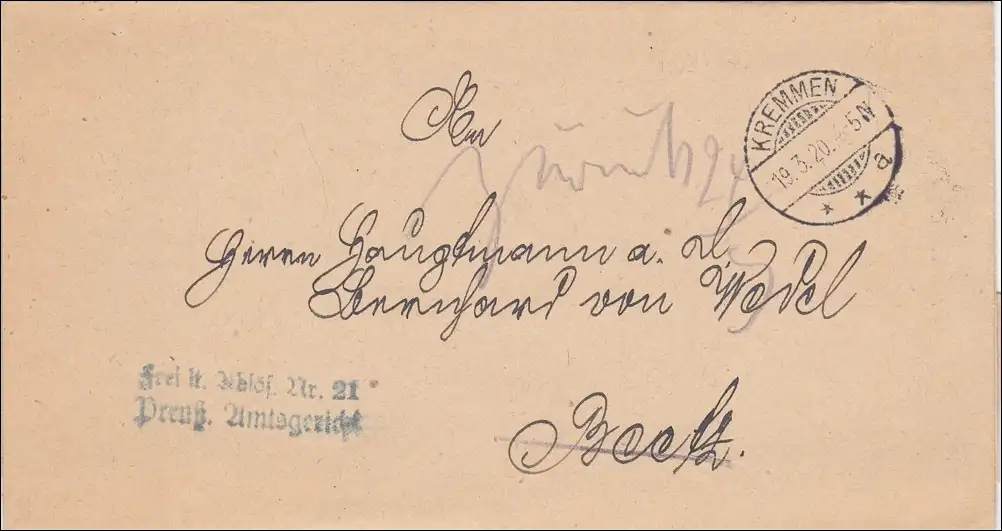 KREMMEN
19.3.20. 4-5 N
* * a
An
zurück 24/3
Herrn Hauptmann a. D.
Bernhard von Wedel
Frei lt. Ablös. Nr. 21
Preuß. Amtsgericht
Beetz.